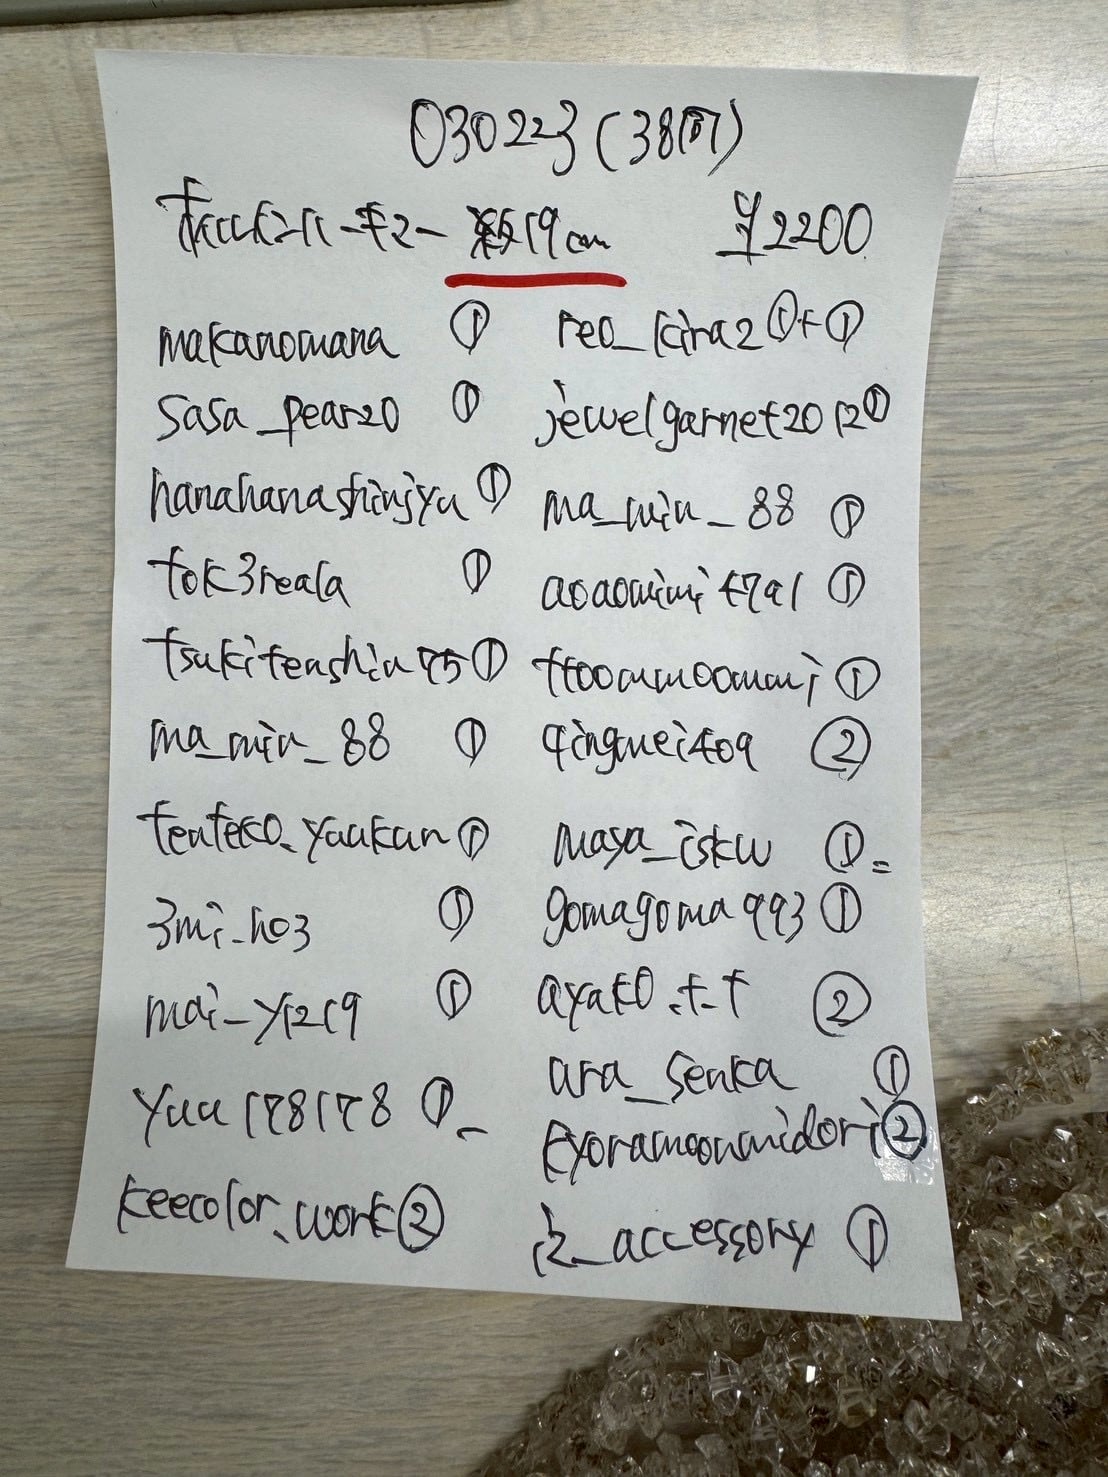 030223 (38

19cm ¥2200
makanomana ①
sasa_pear20 ①
hanahanashinjyu ①
tok3reala ①
tsukitenshin75 ①
ma_min_88 ①
tenteko_yuukun ①
3mi_ho3 ①
mai_y1219 ①
yuu178178 ①
keecolor_work ②
reo_kira2 ①+①
jewelgarnet2012 ①
ma_min_88 ①
aoaomimi4791 ①
ttoommoommi ①
qingmei409 ②
maya_iskw ①
gomagoma993 ①
ayako.t.t ②
ara_senka ①
kyoramoonmidori ②
iz_accessory ①